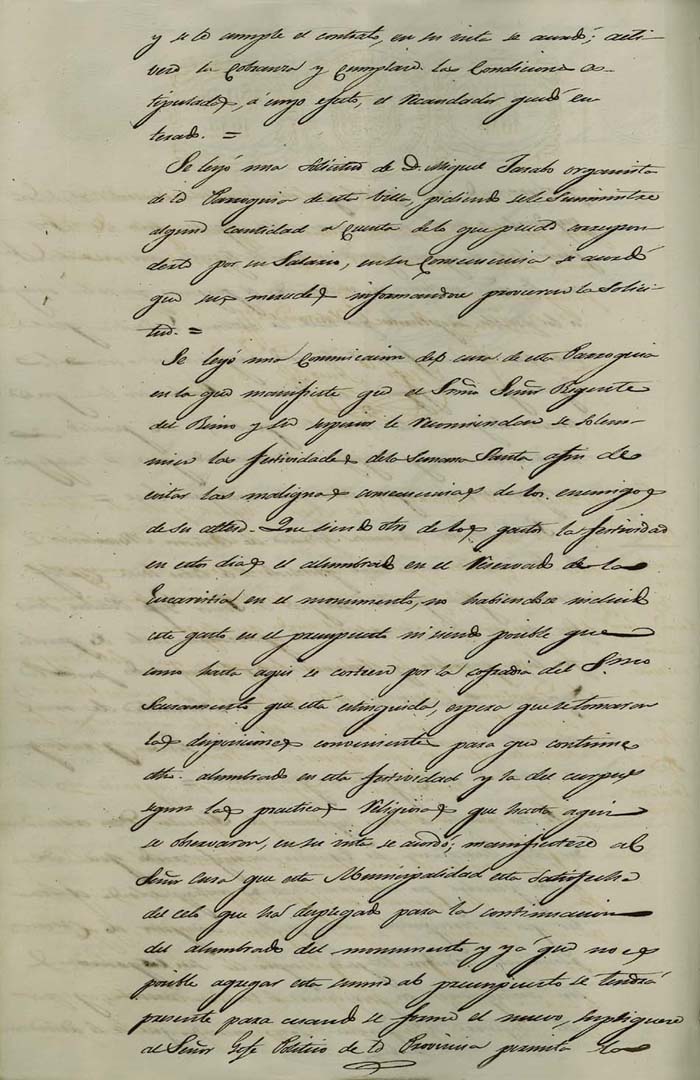 y se lo cumple el contrato, en su vista se acordó; acti-
vese la Cobranza y Cumplase las Condiciones es-
tipuladas, á cuyo efecto, el recaudador quedó en
terado. =
Se leyó una Solicitud de D. Miguel Tarabo organista
de la Parroquia de esta Villa, pidiendo se le Suministre
alguna cantidad a Cuenta de lo que pueda correspon
derle por su Salario, en su Consecuencia se acordó
que sus mercedes informandose procuraran la Solici-
tud. =
Se leyó una Comunicacion del cura de esta Parroquia
en la que manifiesta que el Srmo Señor Regente
del Reino y sus superior le recomiendan se solem-
nisen las festividades de la Semana Santa afin de
evitar las malignas consecuencias de los enemigos
de su altera. Que siendo otro de los gastos la festividad
en estos dias el alumbrado en el Reservado de la
Eucaristia en el monumento, no habiendose incluido
este gasto en el presupuesto ni siendo posible que
como hasta aqui se costeen por la cofradia del S.mo
Sacramento que está extinguida, espera que se tomaran
las disposiciones convenientes para que continue
dho. alumbrado en esta festividad y la del corpus
segun las practicas Religiosas que hasta aqui
se observaron, en su vista se acordó; manifiestese al
Señor Cura que esta Municipalidad esta satisfecha
del celo que ha desplegado para la continuacion
del alumbrado del monumento y ya que no es
posible agregar esta suma al presupuesto se tendrá
presente para cuando se forme el nuevo, supliquese
al Señor Gefe Politico de la Provincia permita la